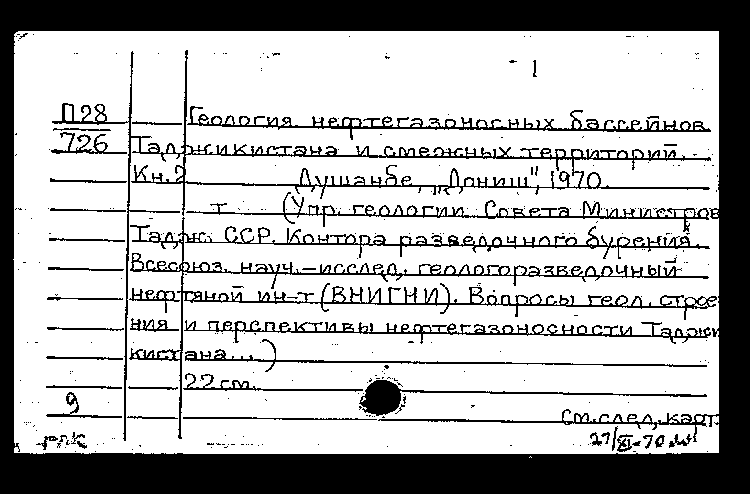 1
П28 Геология нефтегазоносных бассейнов
726 Таджикистана и смежных территорий.
Кн. 2 Душанбе, „Дониш", 1970.
т (Упр. геологии Совета Министров
Тадж. ССР. Контора разведочного бурения.
Всесоюз. науч.-исслед. геологоразведочный
нефтяной ин-т (ВНИГНИ). Вопросы геол. строе
ния и перспективы нефтегазоносности Таджи
кистана...)
22 см.
9
См. след. карт.
27/XI-70